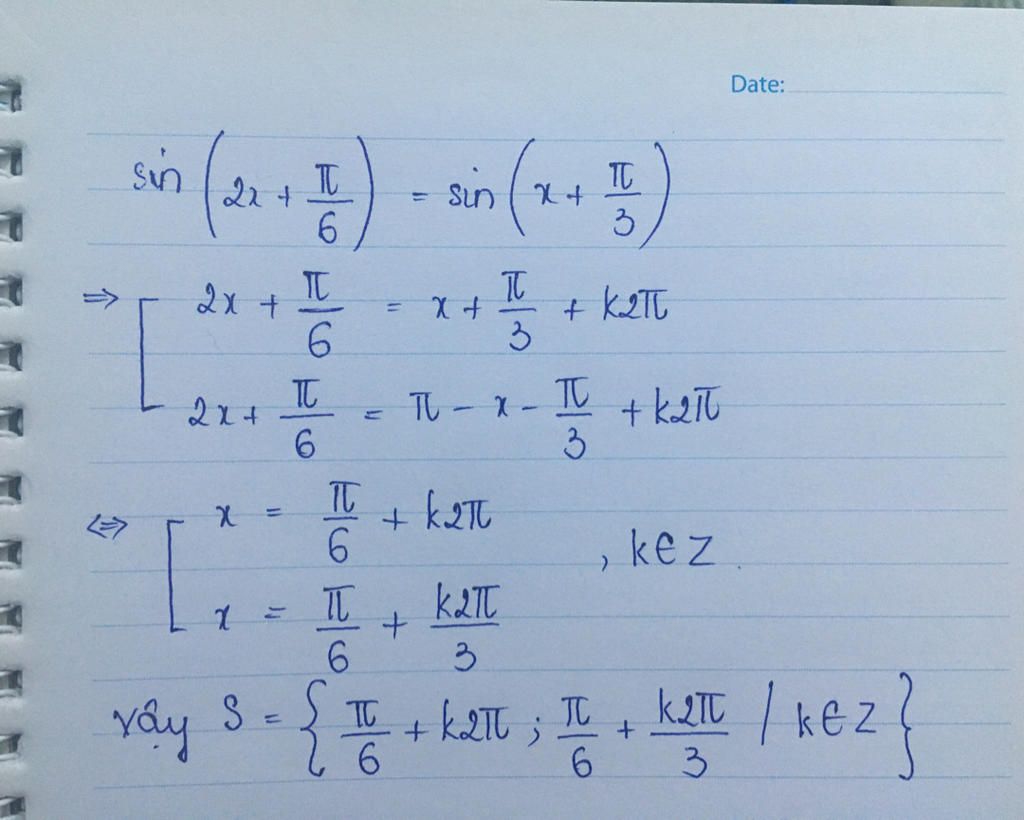 Date:
sin (2x + π/6) = sin (x + π/3)
=> [ 2x + π/6 = x + π/3 + k2π
2x + π/6 = π - x - π/3 + k2π
<=> [ x = π/6 + k2π
, k∈Z.
x = π/6 + k2π/3
vậy S = { π/6 + k2π ; π/6 + k2π/3 / k∈Z }